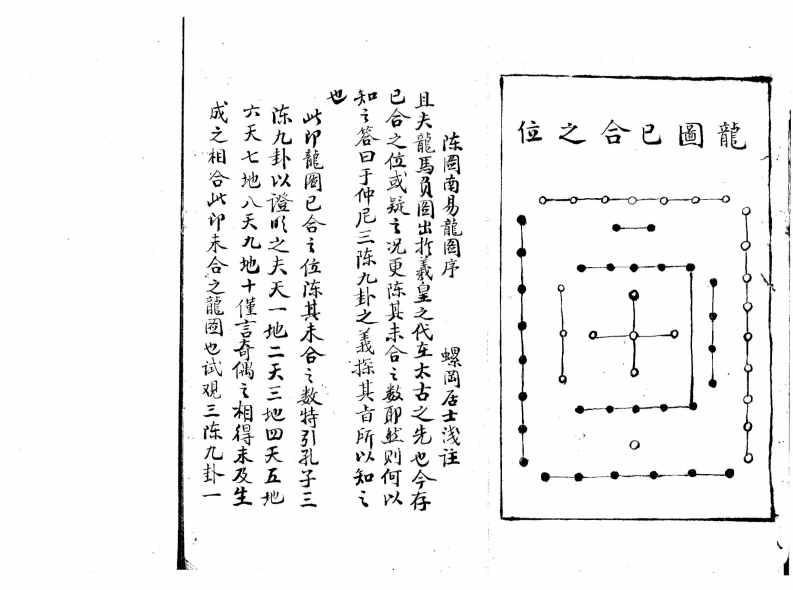 龍圖已合之位
陈圖南易龍圖序 螺岡居士浅注
且夫龍馬負圖出於羲皇之代在太古之先也今存
已合之位或疑之况更陈其未合之数耶然则何以
知之答曰于仲尼三陈九卦之義探其旨所以知之
也
此即龍圖已合之位陈其未合之数特引孔子三
陈九卦以證明之夫天一地二天三地四天五地
六天七地八天九地十僅言奇偶之相得未及生
成之相合此即未合之龍圖也试观三陈九卦一